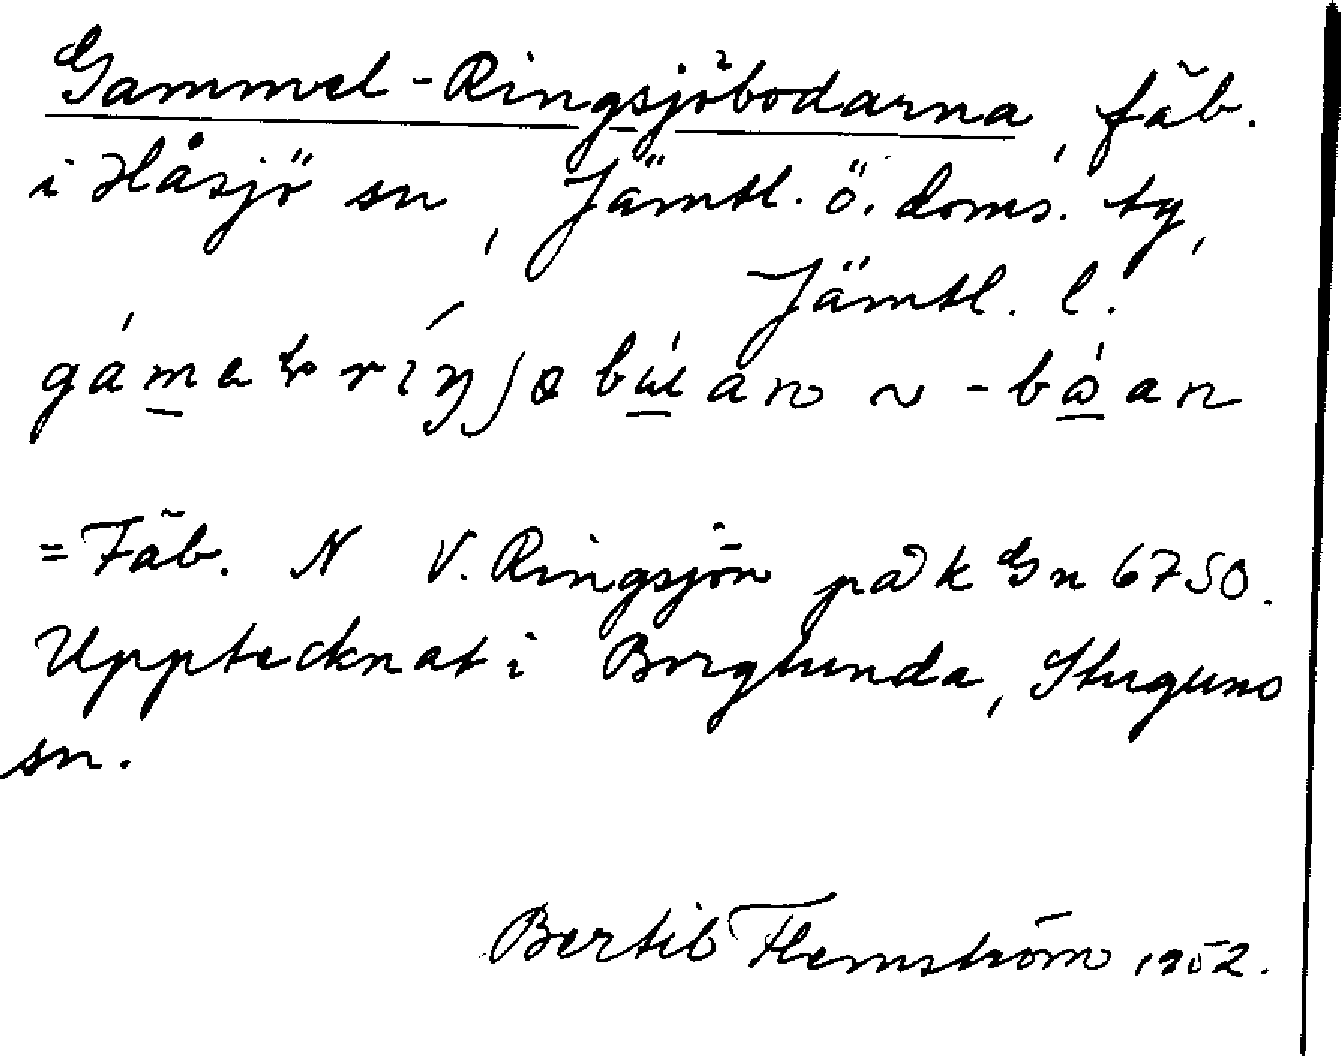 Gammel-Ringsjöbodarna, fäb.
i Håsjö sn, Jämtl. ö. doms. tg,
Jämtl. l.
= Fäb. N V. Ringsjön på k Gn 6750.
Upptecknat i Borglunda, Stuguns
sn.
Bertil Flemström 1952.